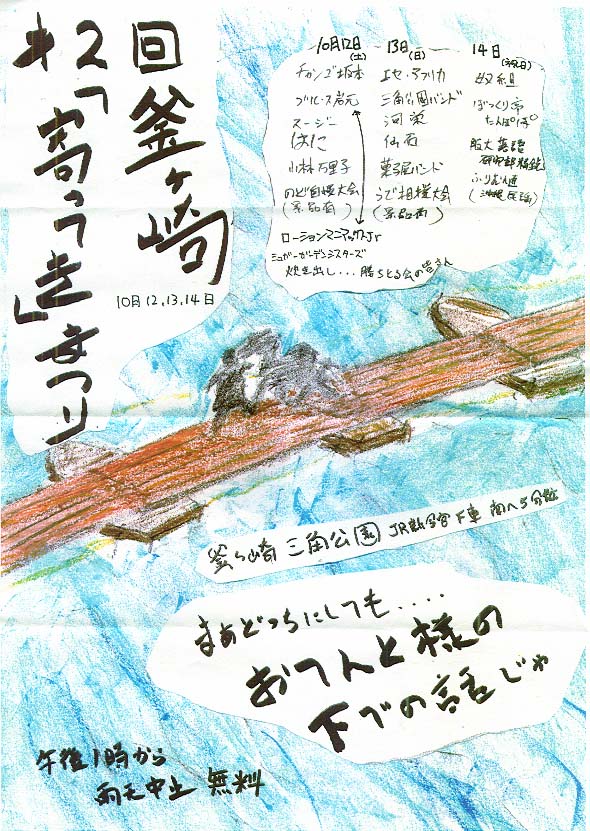 回釜ヶ崎
才2「寄ってき」まつり
10月12,13,14日
10月12日(土)
チャンゴ坂本
ブルース岩元
スージー
はに
小林万里子
のど自慢大会
(景品有)
ローションマニアックスJr
シュガーガーデンシスターズ
炊き出し...勝ちとる会の皆さん
13日(日)
エセ・アフリカ
三角公園バンド
河栄
仙石
菓子屋バンド
うで相撲大会
(景品有)
14日(祝日)
奴組
ぼっくり亭
たんぽぽ
阪大落語
(沖縄民謡)
釜ヶ崎三角公園 JR新今宮下車 南へ5分位
まあどっちにしても....
おてんと様の
下での話じゃ
午後1時から
雨天中止 無料